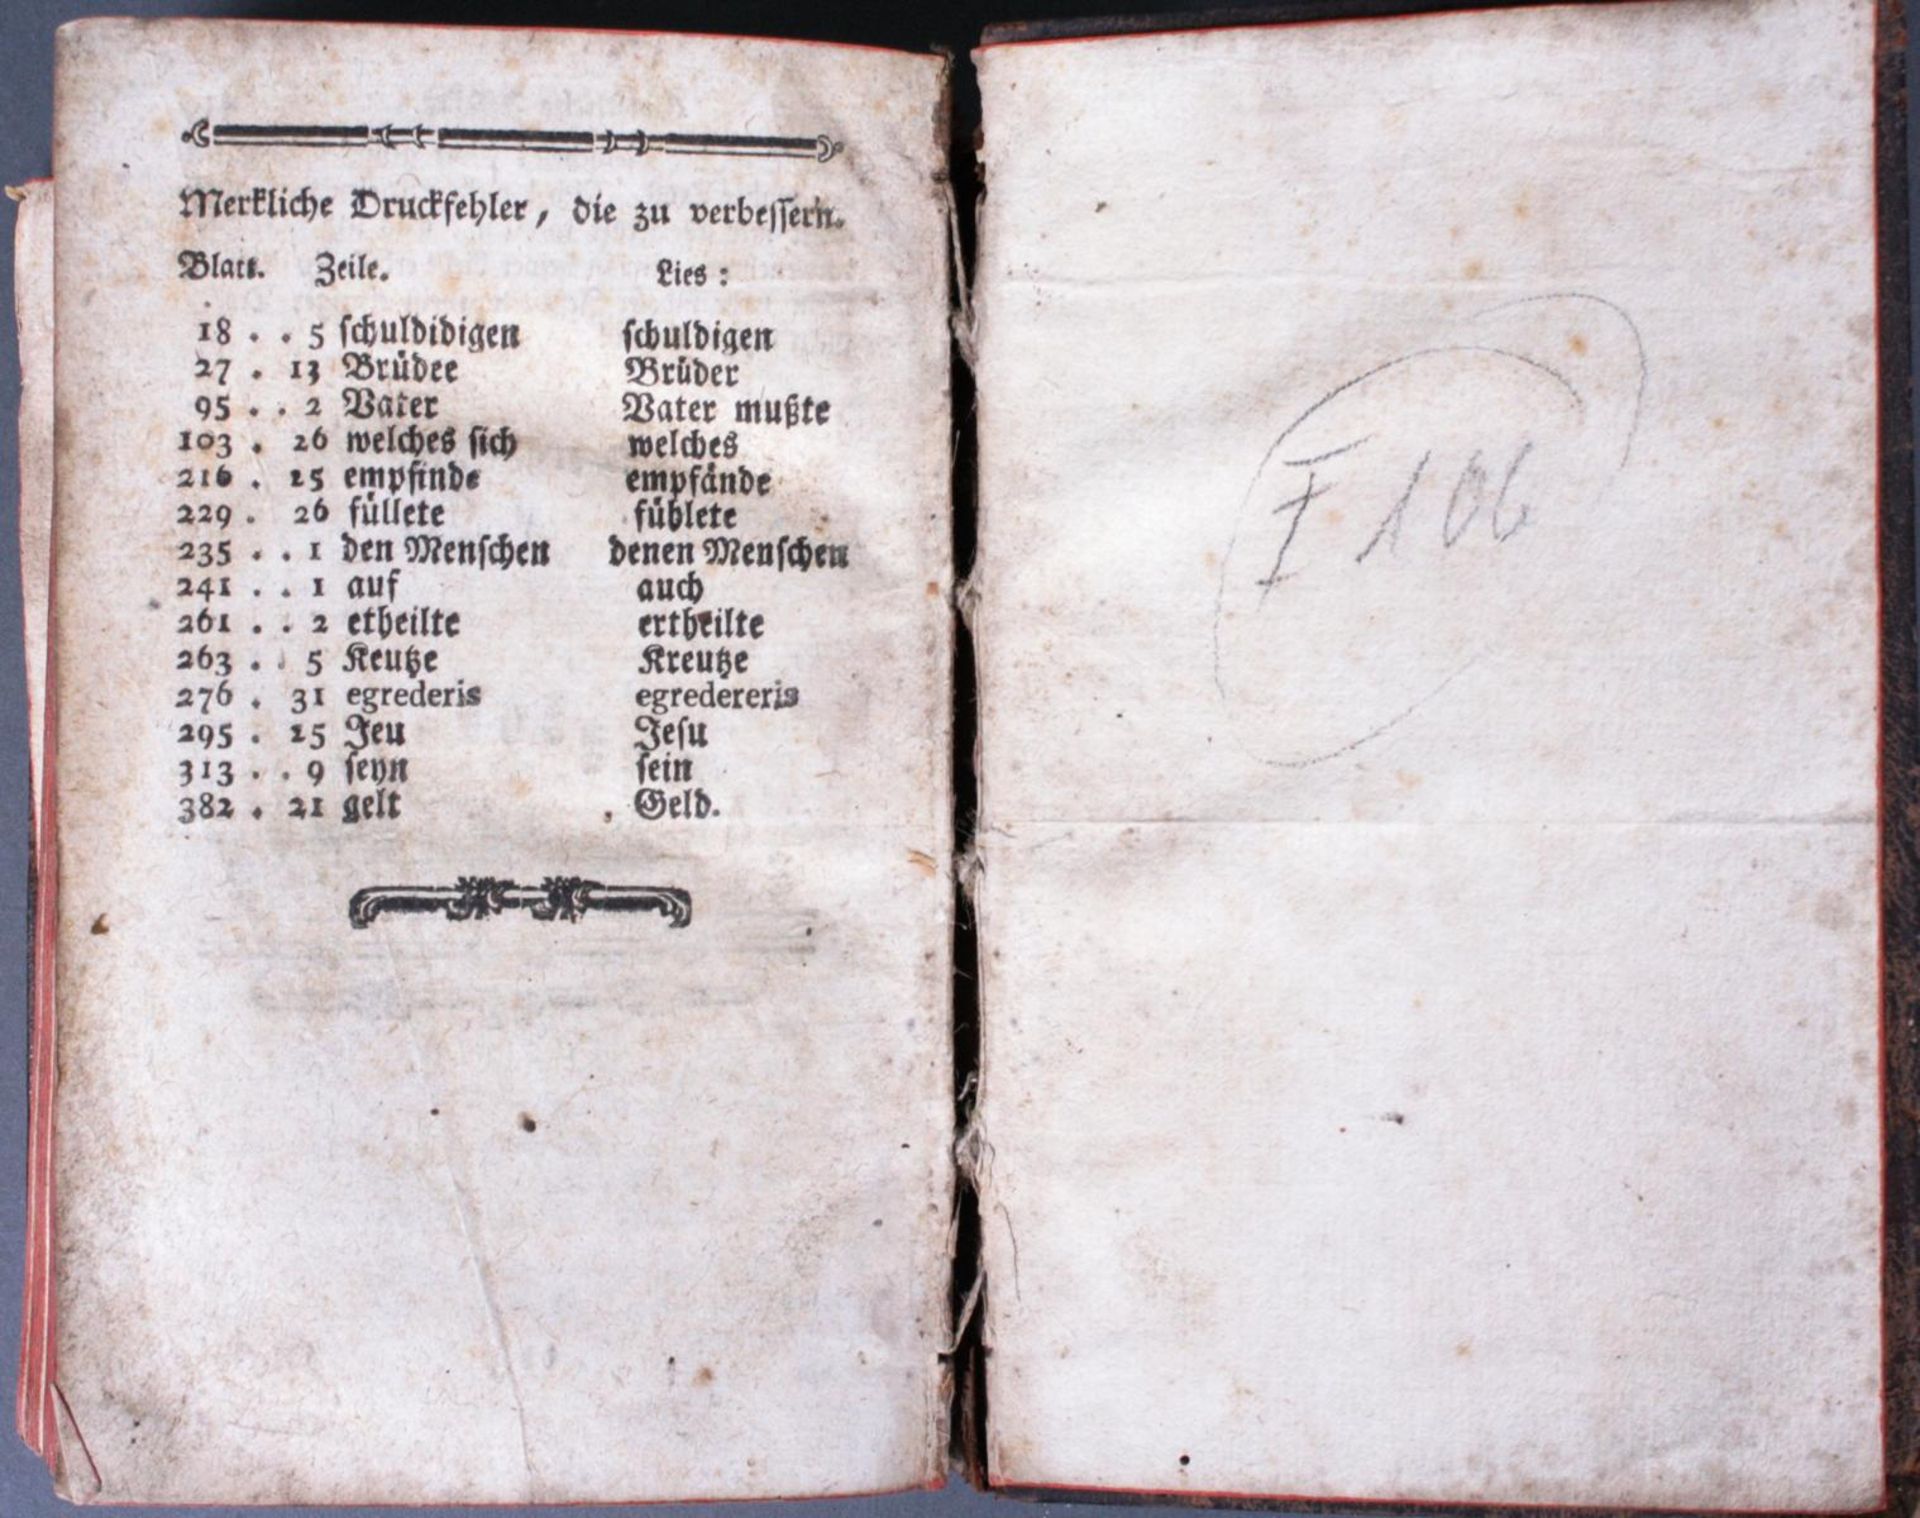 Merkliche Druckfehler, die zu verbessern.
Blatt. Zeile. Lies:
18 . . 5 schuldidigen schuldigen
27 . 13 Brüdee Brüder
95 . . 2 Vater Vater mußte
103 . 26 welches sich welches
216 . 15 empfinde empfände
229 . 26 füllete fühlete
235 . . 1 den Menschen denen Menschen
241 . . 1 auf auch
261 . . 2 etheilte ertheilte
263 . . 5 Keutze Kreutze
276 . 31 egrederis egredereris
295 . 15 Jeu Jesu
313 . . 9 seyn sein
382 . 21 gelt Geld.
I 106